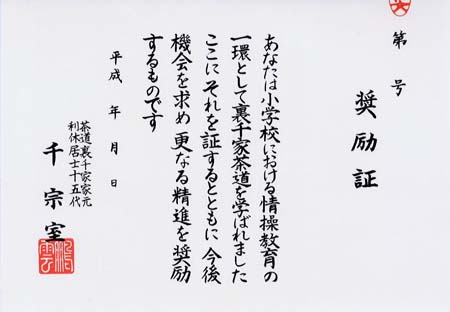 第　号
奨励証
あなたは小学校における情操教育の
一環として裏千家茶道を学ばれました
ここにそれを証するとともに 今後
機会を求め 更なる精進を奨励
するものです
平成　年　月　日
茶道裏千家家元
利休居士十五代
千宗室